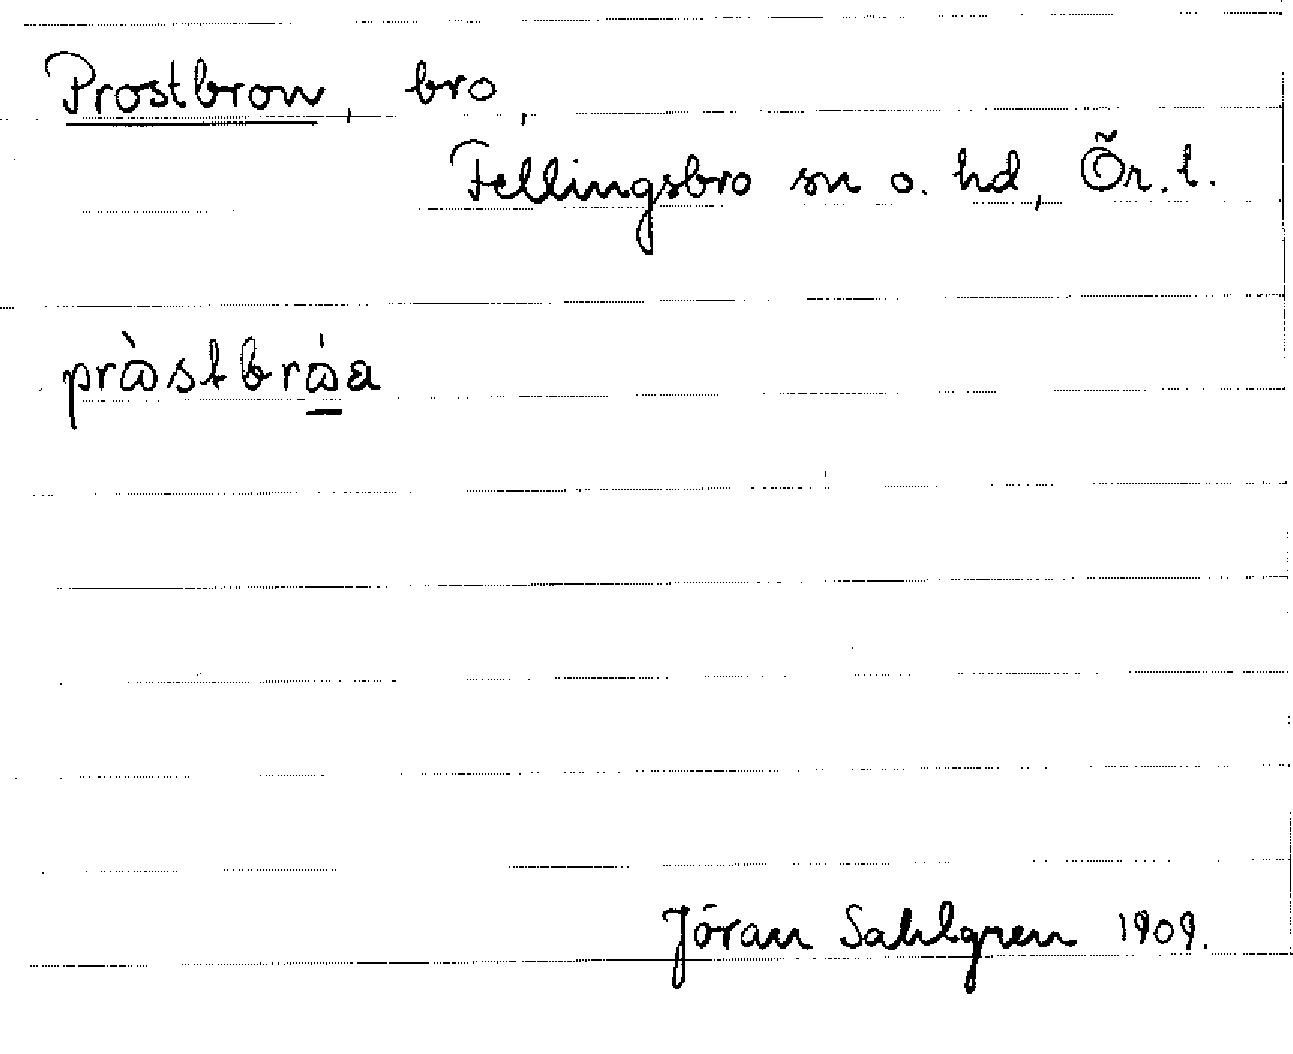 Prostbron, bro,
Fellingsbro sn o. hd, Ör. l.
pròstbróa
Jöran Sahlgren 1909.